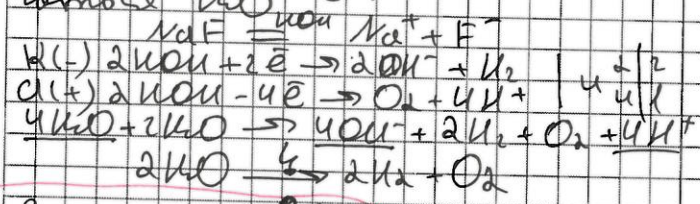 NaF =HOH Na⁺ + F⁻
K(-) 2HOH + 2ē → 2OH⁻ + H₂ | 4 | 2 | 2
A(+) 2HOH - 4ē → O₂ + 4H⁺ | 4 | 1
4H₂O + 2H₂O → 4OH⁻ + 2H₂ + O₂ + 4H⁺
2H₂O → 2H₂ + O₂